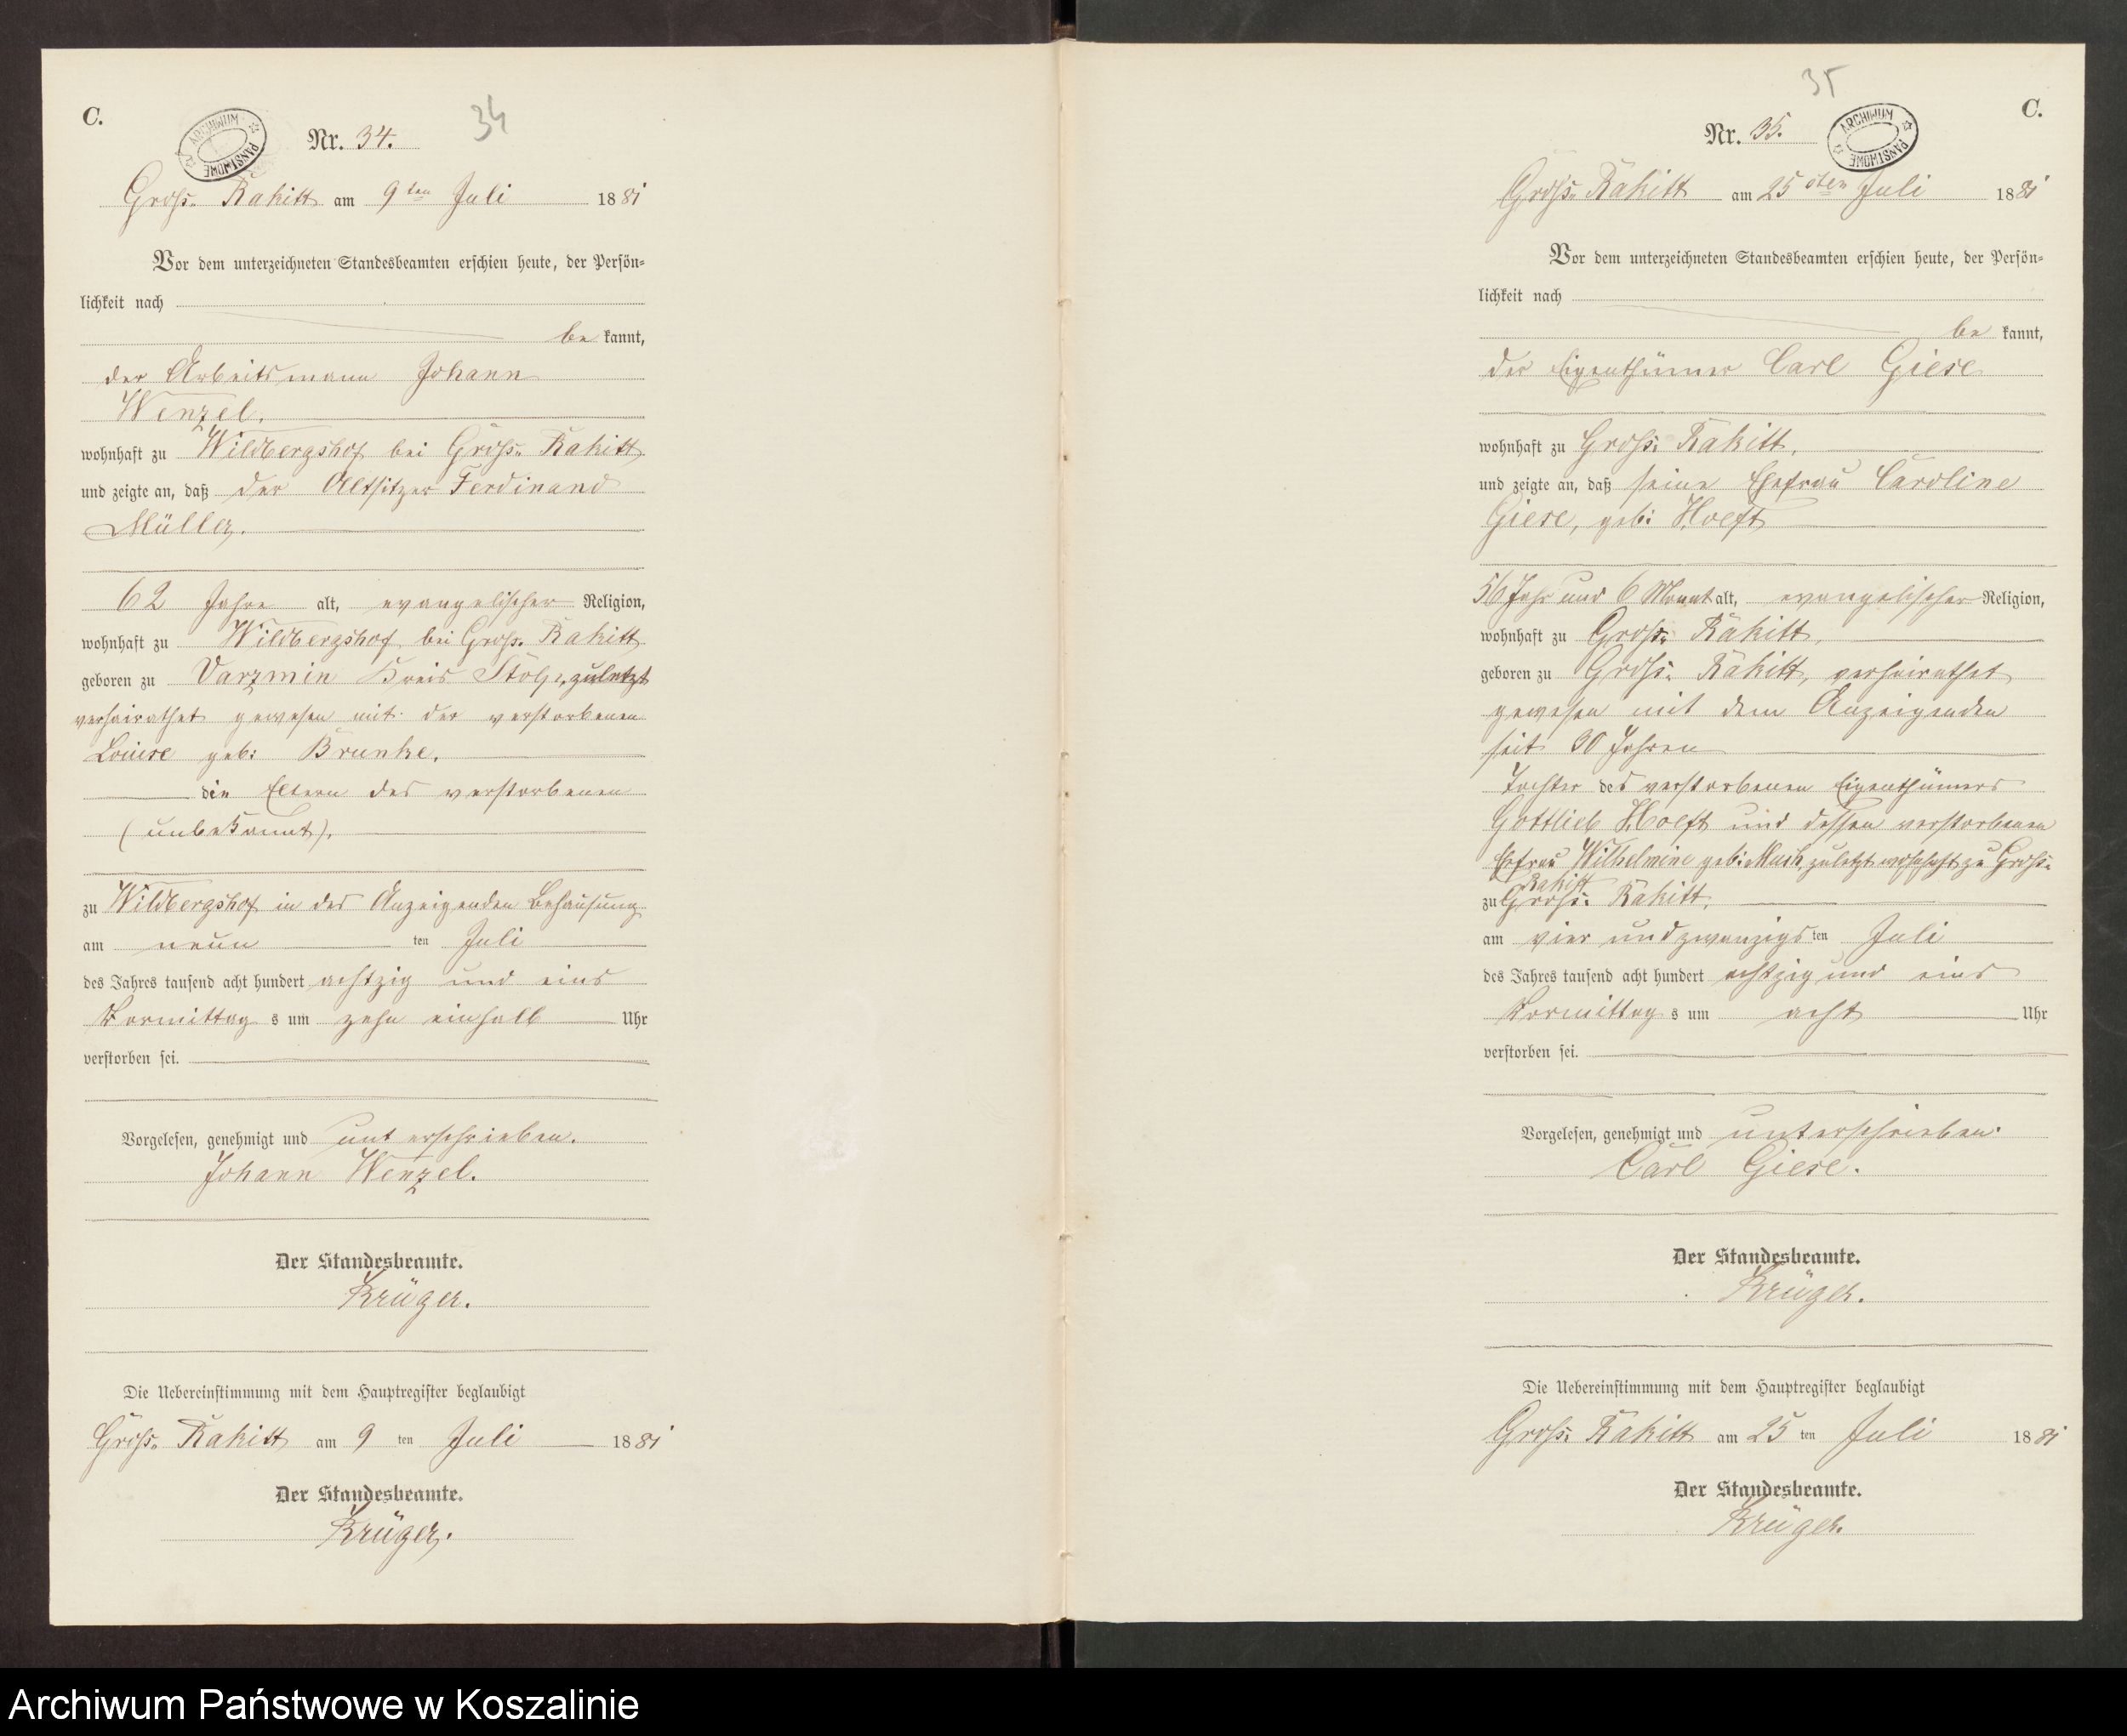 C.
ARCHIWUM PAŃSTWOWE
Nr. 34.
34
Groß- Rakitt am 9ten Juli 1881
Vor dem unterzeichneten Standesbeamten erschien heute, der Persön-
lichkeit nach
be kannt,
der Arbeitsmann Johann
Wenzel.
wohnhaft zu Wildbergshof bei Groß- Rakitt
und zeigte an, daß der Altsitzer Ferdinand
Müller.
62 Jahre alt, evangelischer Religion,
wohnhaft zu Wildbergshof bei Groß- Rakitt
geboren zu Varzmin Kreis Stolp, zuletzt
verheirathet gewesen mit der verstorbenen
Louise geb: Brunke.
die Eltern des verstorbenen
(unbekannt).
zu Wildbergshof in des Anzeigenden Behausung
am neun ten Juli
des Jahres tausend acht hundert achtzig und eins
Vormittag s um zehn einhalb Uhr
verstorben sei.
Vorgelesen, genehmigt und unterschrieben.
Johann Wenzel.
Der Standesbeamte.
Krüger.
Die Uebereinstimmung mit dem Hauptregister beglaubigt
Groß- Rakitt am 9 ten Juli 1881
Der Standesbeamte.
Krüger.
35
C.
Nr. 35.
ARCHIWUM PAŃSTWOWE
Groß- Rakitt am 25sten Juli 1881
Vor dem unterzeichneten Standesbeamten erschien heute, der Persön-
lichkeit nach
be kannt,
der Eigenthümer Carl Giese
wohnhaft zu Groß- Rakitt,
und zeigte an, daß seine Ehefrau Caroline
Giese, geb: Hoeft
56 Jahr und 6 Monat alt, evangelischer Religion,
wohnhaft zu Groß- Rakitt,
geboren zu Groß- Rakitt, verheirathet
gewesen mit dem Anzeigenden
seit 30 Jahren
Tochter des verstorbenen Eigenthümers
Gottlieb Hoeft und dessen verstorbenen
Ehefrau Wilhelmine geb: zuletzt wohnhaft zu Groß-
Rakitt
zu Groß- Rakitt,
am vier und zwanzigs ten Juli
des Jahres tausend acht hundert achtzig und eins
Vormittag s um acht Uhr
verstorben sei.
Vorgelesen, genehmigt und unterschrieben.
Carl Giese.
Der Standesbeamte.
Krüger.
Die Uebereinstimmung mit dem Hauptregister beglaubigt
Groß- Rakitt am 25 ten Juli 1881
Der Standesbeamte.
Krüger.
Archiwum Państwowe w Koszalinie